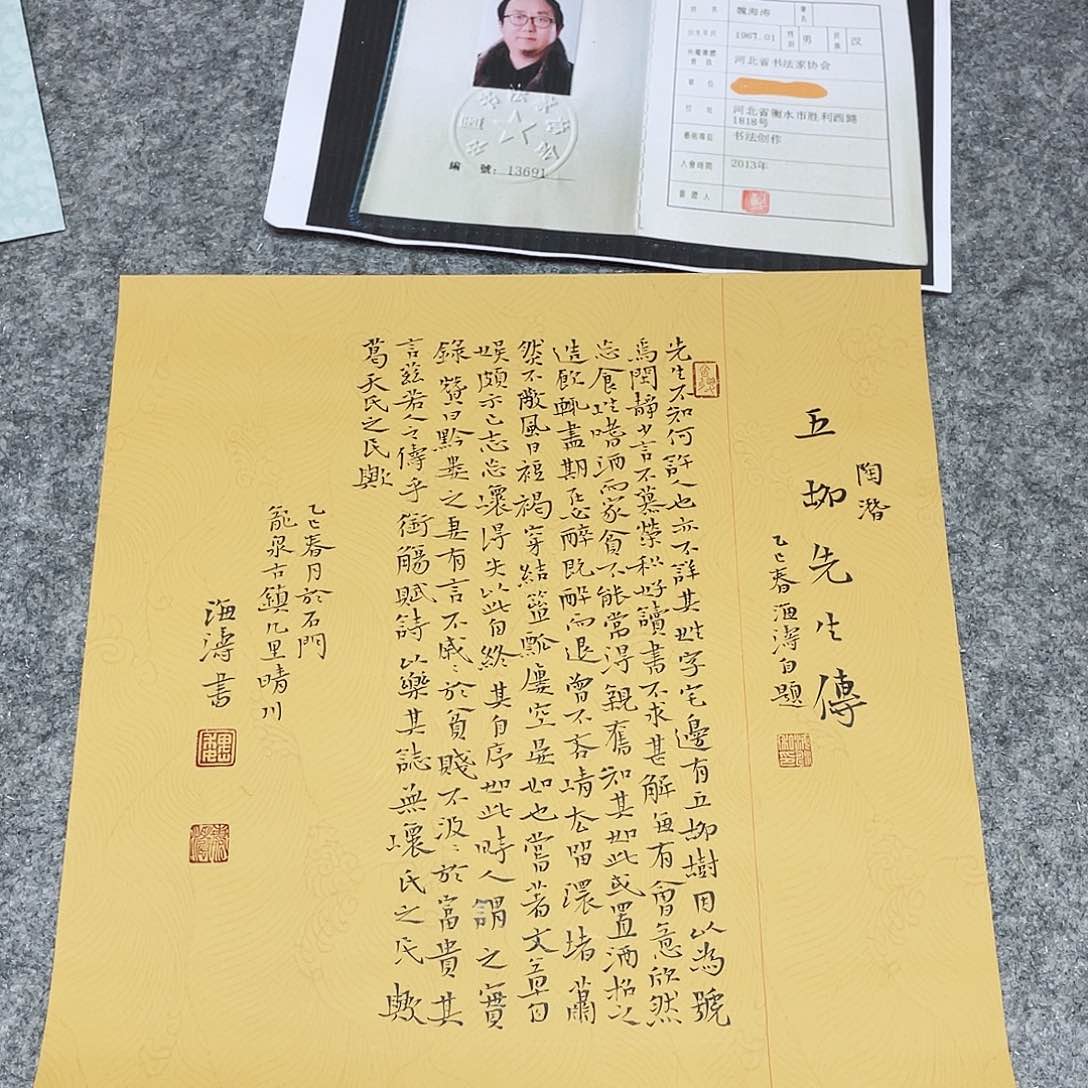 姓名 魏海涛 署名
出生年月 1967.01 性别 男 民族 汉
所属团体会员 河北省书法家协会
单位
住址 河北省衡水市胜利西路
1818号
艺术专长 书法创作
入會時間 2013年
簽證人
编號: 13691
五柳先生傳
陶潛
乙巳春海濤自題
先生不知何許人也亦不詳其姓字宅邊有五柳樹因以為號
焉閑靜少言不慕榮利好讀書不求甚解每有會意欣然
忘食性嗜酒而家貧不能常得親舊知其如此或置酒招之
造飲輒盡期在必醉既醉而退曾不吝情去留環堵蕭
然不蔽風日短褐穿結簞瓢屢空晏如也嘗著文章自
娛頗示己志忘懷得失以此自終其自序如此時人謂之實
錄贊曰黔婁之妻有言不戚〻於貧賤不汲〻於富貴其
言茲若人之儔乎銜觴賦詩以樂其誌無懷氏之民歟
葛天氏之民歟
乙巳春月於石門
龍泉古鎮九里晴川
海濤書